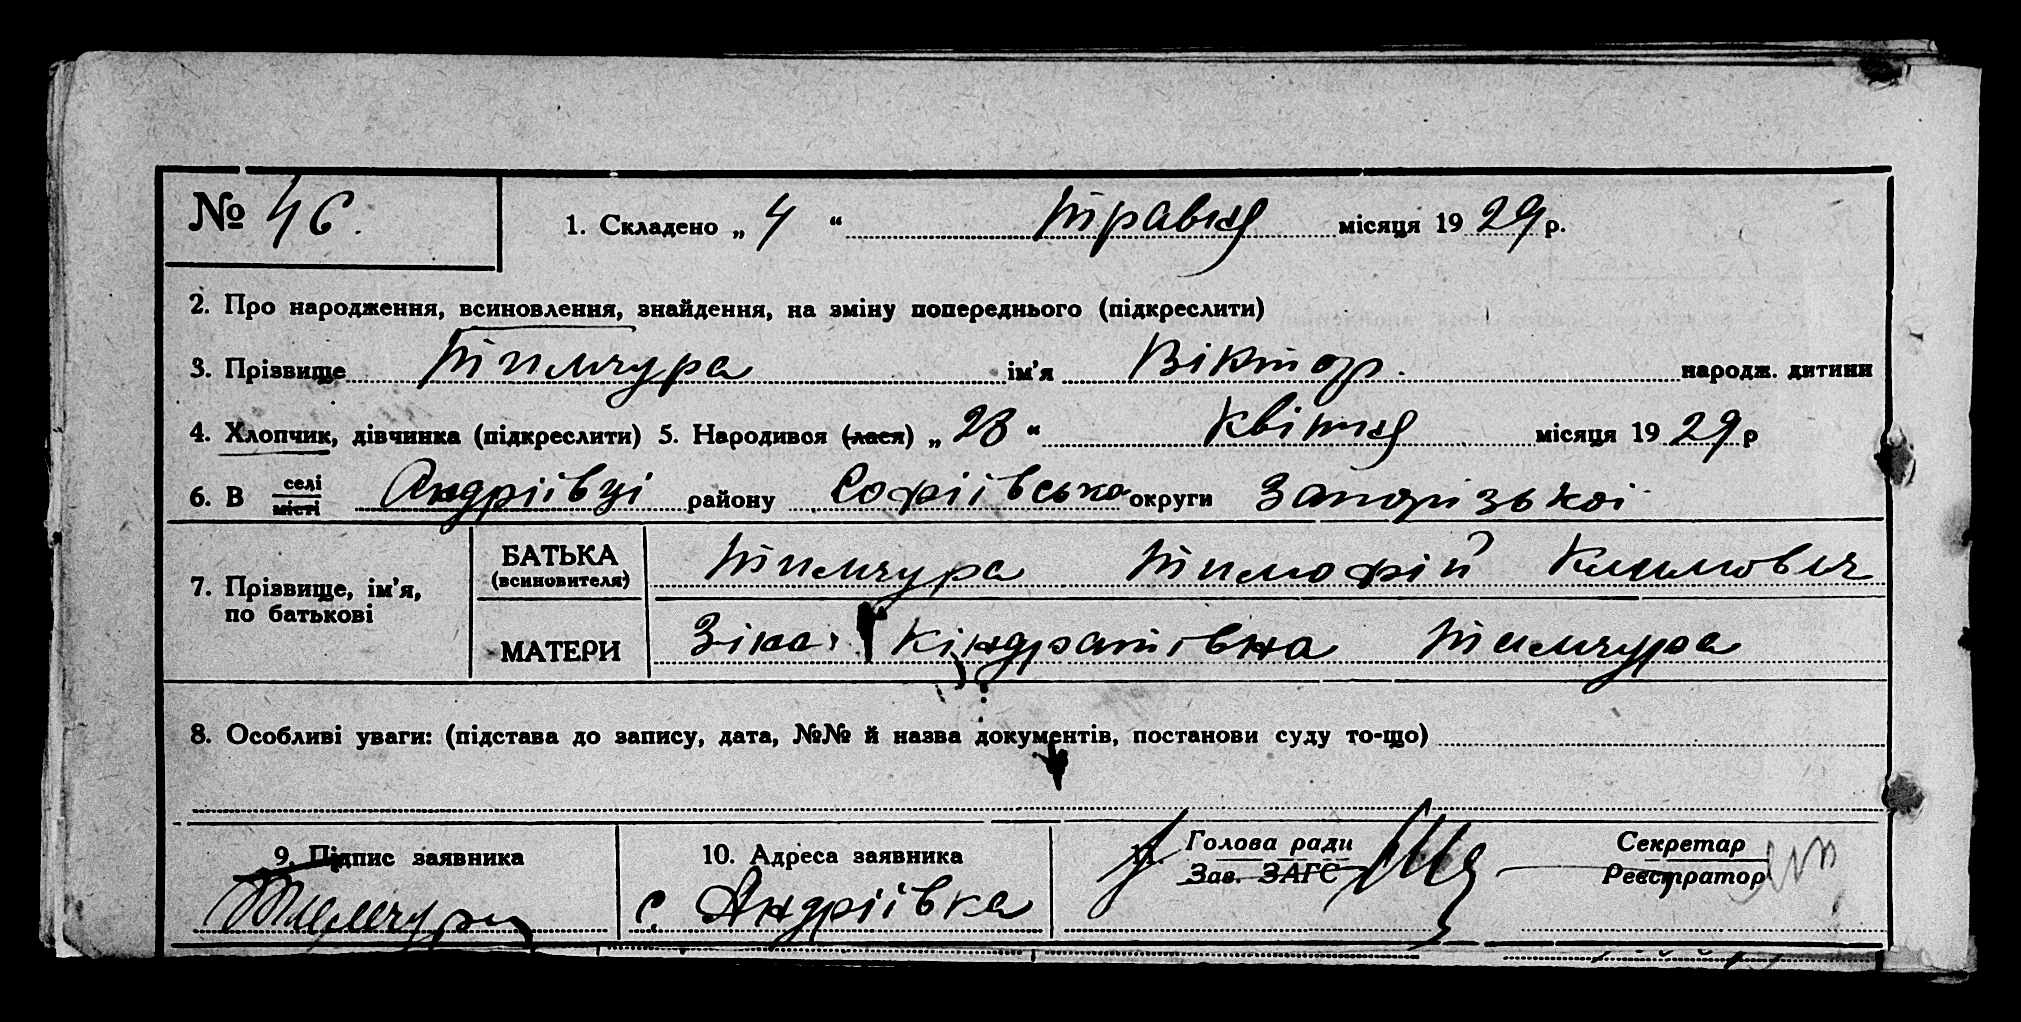 № 46. 1. Складено „ 4 “ травня місяця 1929 р.
2. Про народження, всиновлення, знайдення, на зміну попереднього (підкреслити)
3. Прізвище Тимчура ім'я Віктор. народж. дитини
4. Хлопчик, дівчинка (підкреслити) 5. Народився (лася) „ 28 “ квітня місяця 1929 р
6. В селі
місті Андріївці району Софіївсько округи Запорізької
7. Прізвище, ім'я,
по батькові
БАТЬКА
(всиновителя) Тимчура Тимофій Климович
МАТЕРИ Зіна Кіндратівна Тимчура
8. Особливі уваги: (підстава до запису, дата, №№ й назва документів, постанови суду то-що)
9. Підпис заявника
Тимчура
10. Адреса заявника
с. Андріївка
Голова ради
Зав. ЗАГС
Секретар
Реєстратор